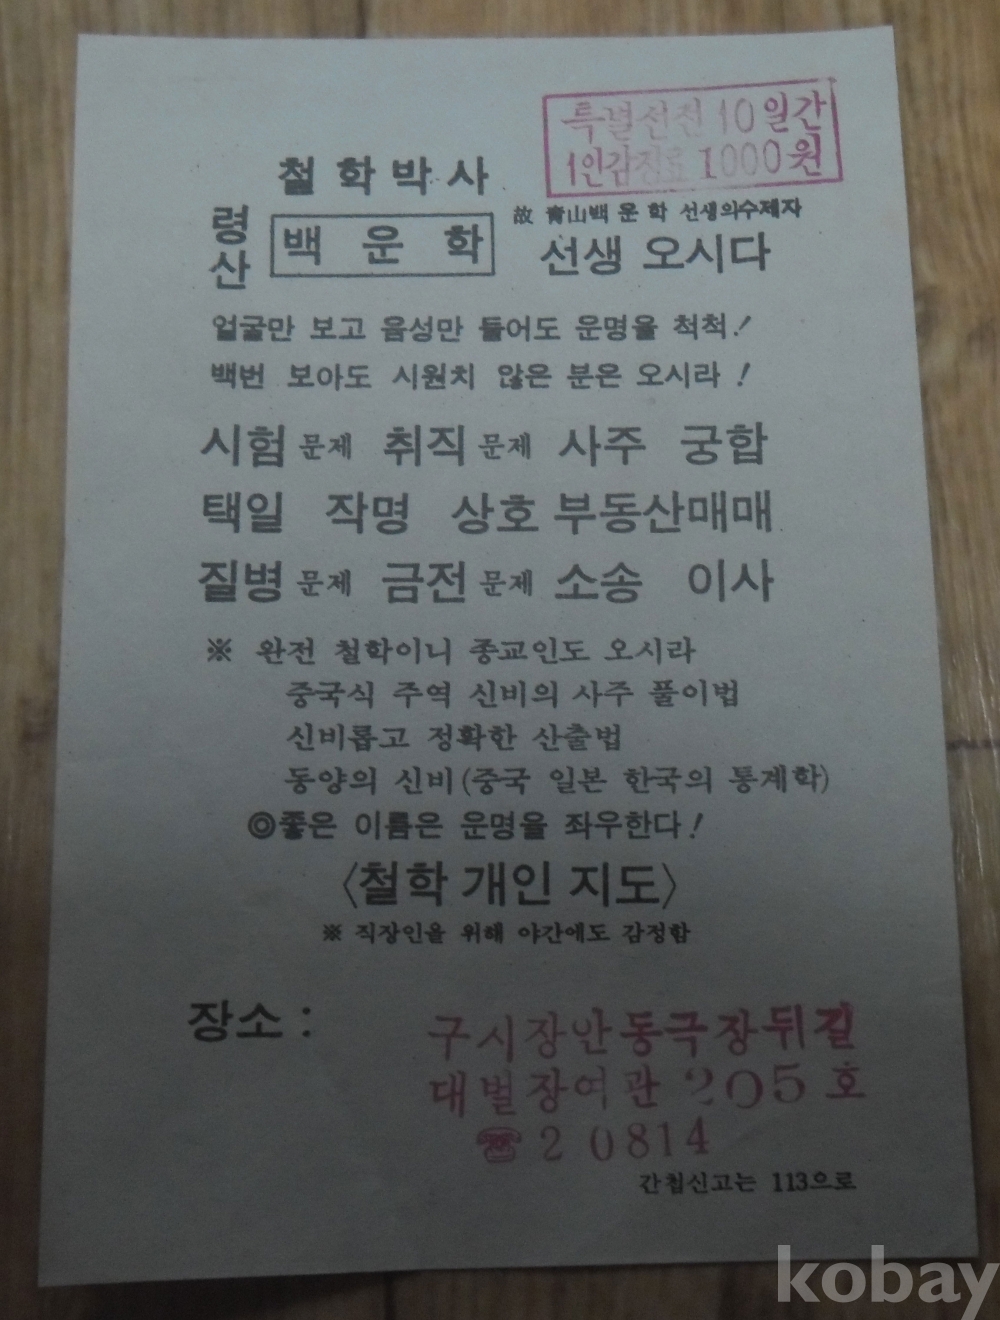 특별선전 10일간
1인감정료 1000원
철학박사
령산 백운학
故 靑山백운학 선생의수제자
선생 오시다
얼굴만 보고 음성만 들어도 운명을 척척!
백번 보아도 시원치 않은 분은 오시라!
시험문제 취직문제 사주 궁합
택일 작명 상호 부동산매매
질병문제 금전문제 소송 이사
※ 완전 철학이니 종교인도 오시라
중국식 주역 신비의 사주 풀이법
신비롭고 정확한 산출법
동양의 신비(중국 일본 한국의 통계학)
◎좋은 이름은 운명을 좌우한다!
〈철학 개인 지도〉
※ 직장인을 위해 야간에도 감정함
장소 :
구시장안동극장뒤길
대벌장여관 205호
☎ 2 0814
간첩신고는 113으로
kobay